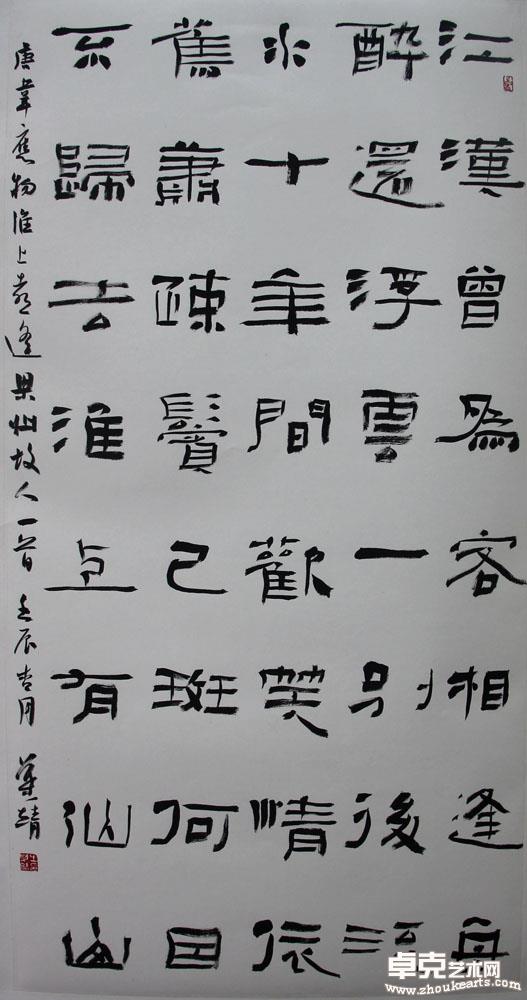 江漢曾為客相逢每
醉還浮雲一別後流
水十年間歡笑情依
舊蕭疎鬢已斑何因
不歸去淮上有仙山
唐韋應物淮上喜逢梁州故人一首 壬辰杏月
卓克艺术网
www.zhoukearts.com